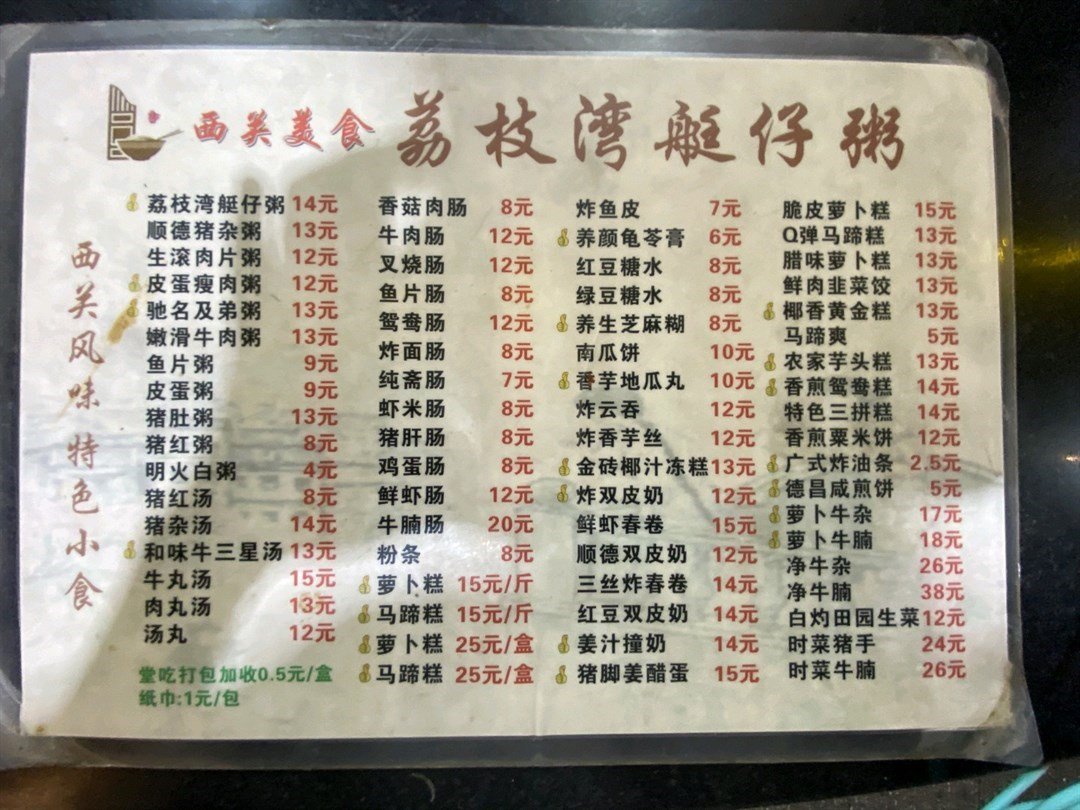 西关美食 荔枝湾艇仔粥
西关风味特色小食
荔枝湾艇仔粥 14元
顺德猪杂粥 13元
生滚肉片粥 12元
皮蛋瘦肉粥 12元
驰名及弟粥 13元
嫩滑牛肉粥 13元
鱼片粥 9元
皮蛋粥 9元
猪肚粥 13元
猪红粥 8元
明火白粥 4元
猪红汤 8元
猪杂汤 14元
和味牛三星汤 13元
牛丸汤 15元
肉丸汤 13元
汤丸 12元
堂吃打包加收0.5元/盒
纸巾:1元/包
香菇肉肠 8元
牛肉肠 12元
叉烧肠 12元
鱼片肠 8元
鸳鸯肠 12元
炸面肠 8元
纯斋肠 7元
虾米肠 8元
猪肝肠 8元
鸡蛋肠 8元
鲜虾肠 12元
牛腩肠 20元
粉条 8元
萝卜糕 15元/斤
马蹄糕 15元/斤
萝卜糕 25元/盒
马蹄糕 25元/盒
炸鱼皮 7元
养颜龟苓膏 6元
红豆糖水 8元
绿豆糖水 8元
养生芝麻糊 8元
南瓜饼 10元
香芋地瓜丸 10元
炸云吞 12元
炸香芋丝 12元
金砖椰汁冻糕 13元
炸双皮奶 12元
鲜虾春卷 15元
顺德双皮奶 12元
三丝炸春卷 14元
红豆双皮奶 14元
姜汁撞奶 14元
猪脚姜醋蛋 15元
脆皮萝卜糕 15元
Q弹马蹄糕 13元
腊味萝卜糕 13元
鲜肉韭菜饺 13元
椰香黄金糕 13元
马蹄爽 5元
农家芋头糕 13元
香煎鸳鸯糕 14元
特色三拼糕 14元
香煎粟米饼 12元
广式炸油条 2.5元
德昌咸煎饼 5元
萝卜牛杂 17元
萝卜牛腩 18元
净牛杂 26元
净牛腩 38元
白灼田园生菜 12元
时菜猪手 24元
时菜牛腩 26元